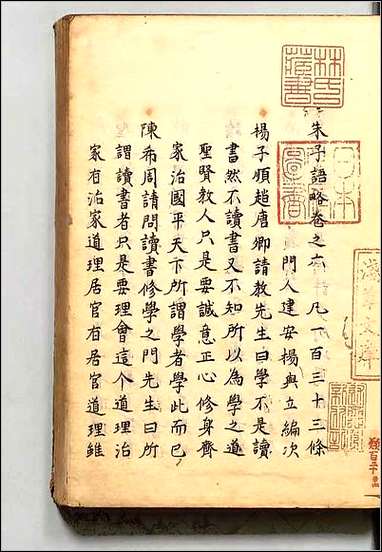 朱子語略卷之六 凡一百三十三條
門人建安楊與立編次
楊子順趙唐卿請教先生曰學不是讀
書然不讀書又不知所以為學之道
聖賢教人只是要誠意正心修身齊
家治國平天下所謂學者學此而已
陳希周請問讀書修學之門先生曰所
謂讀書者只是要理會這个道理治
家有治家道理居官有居官道理雖
林氏藏書
日本
淺草文庫